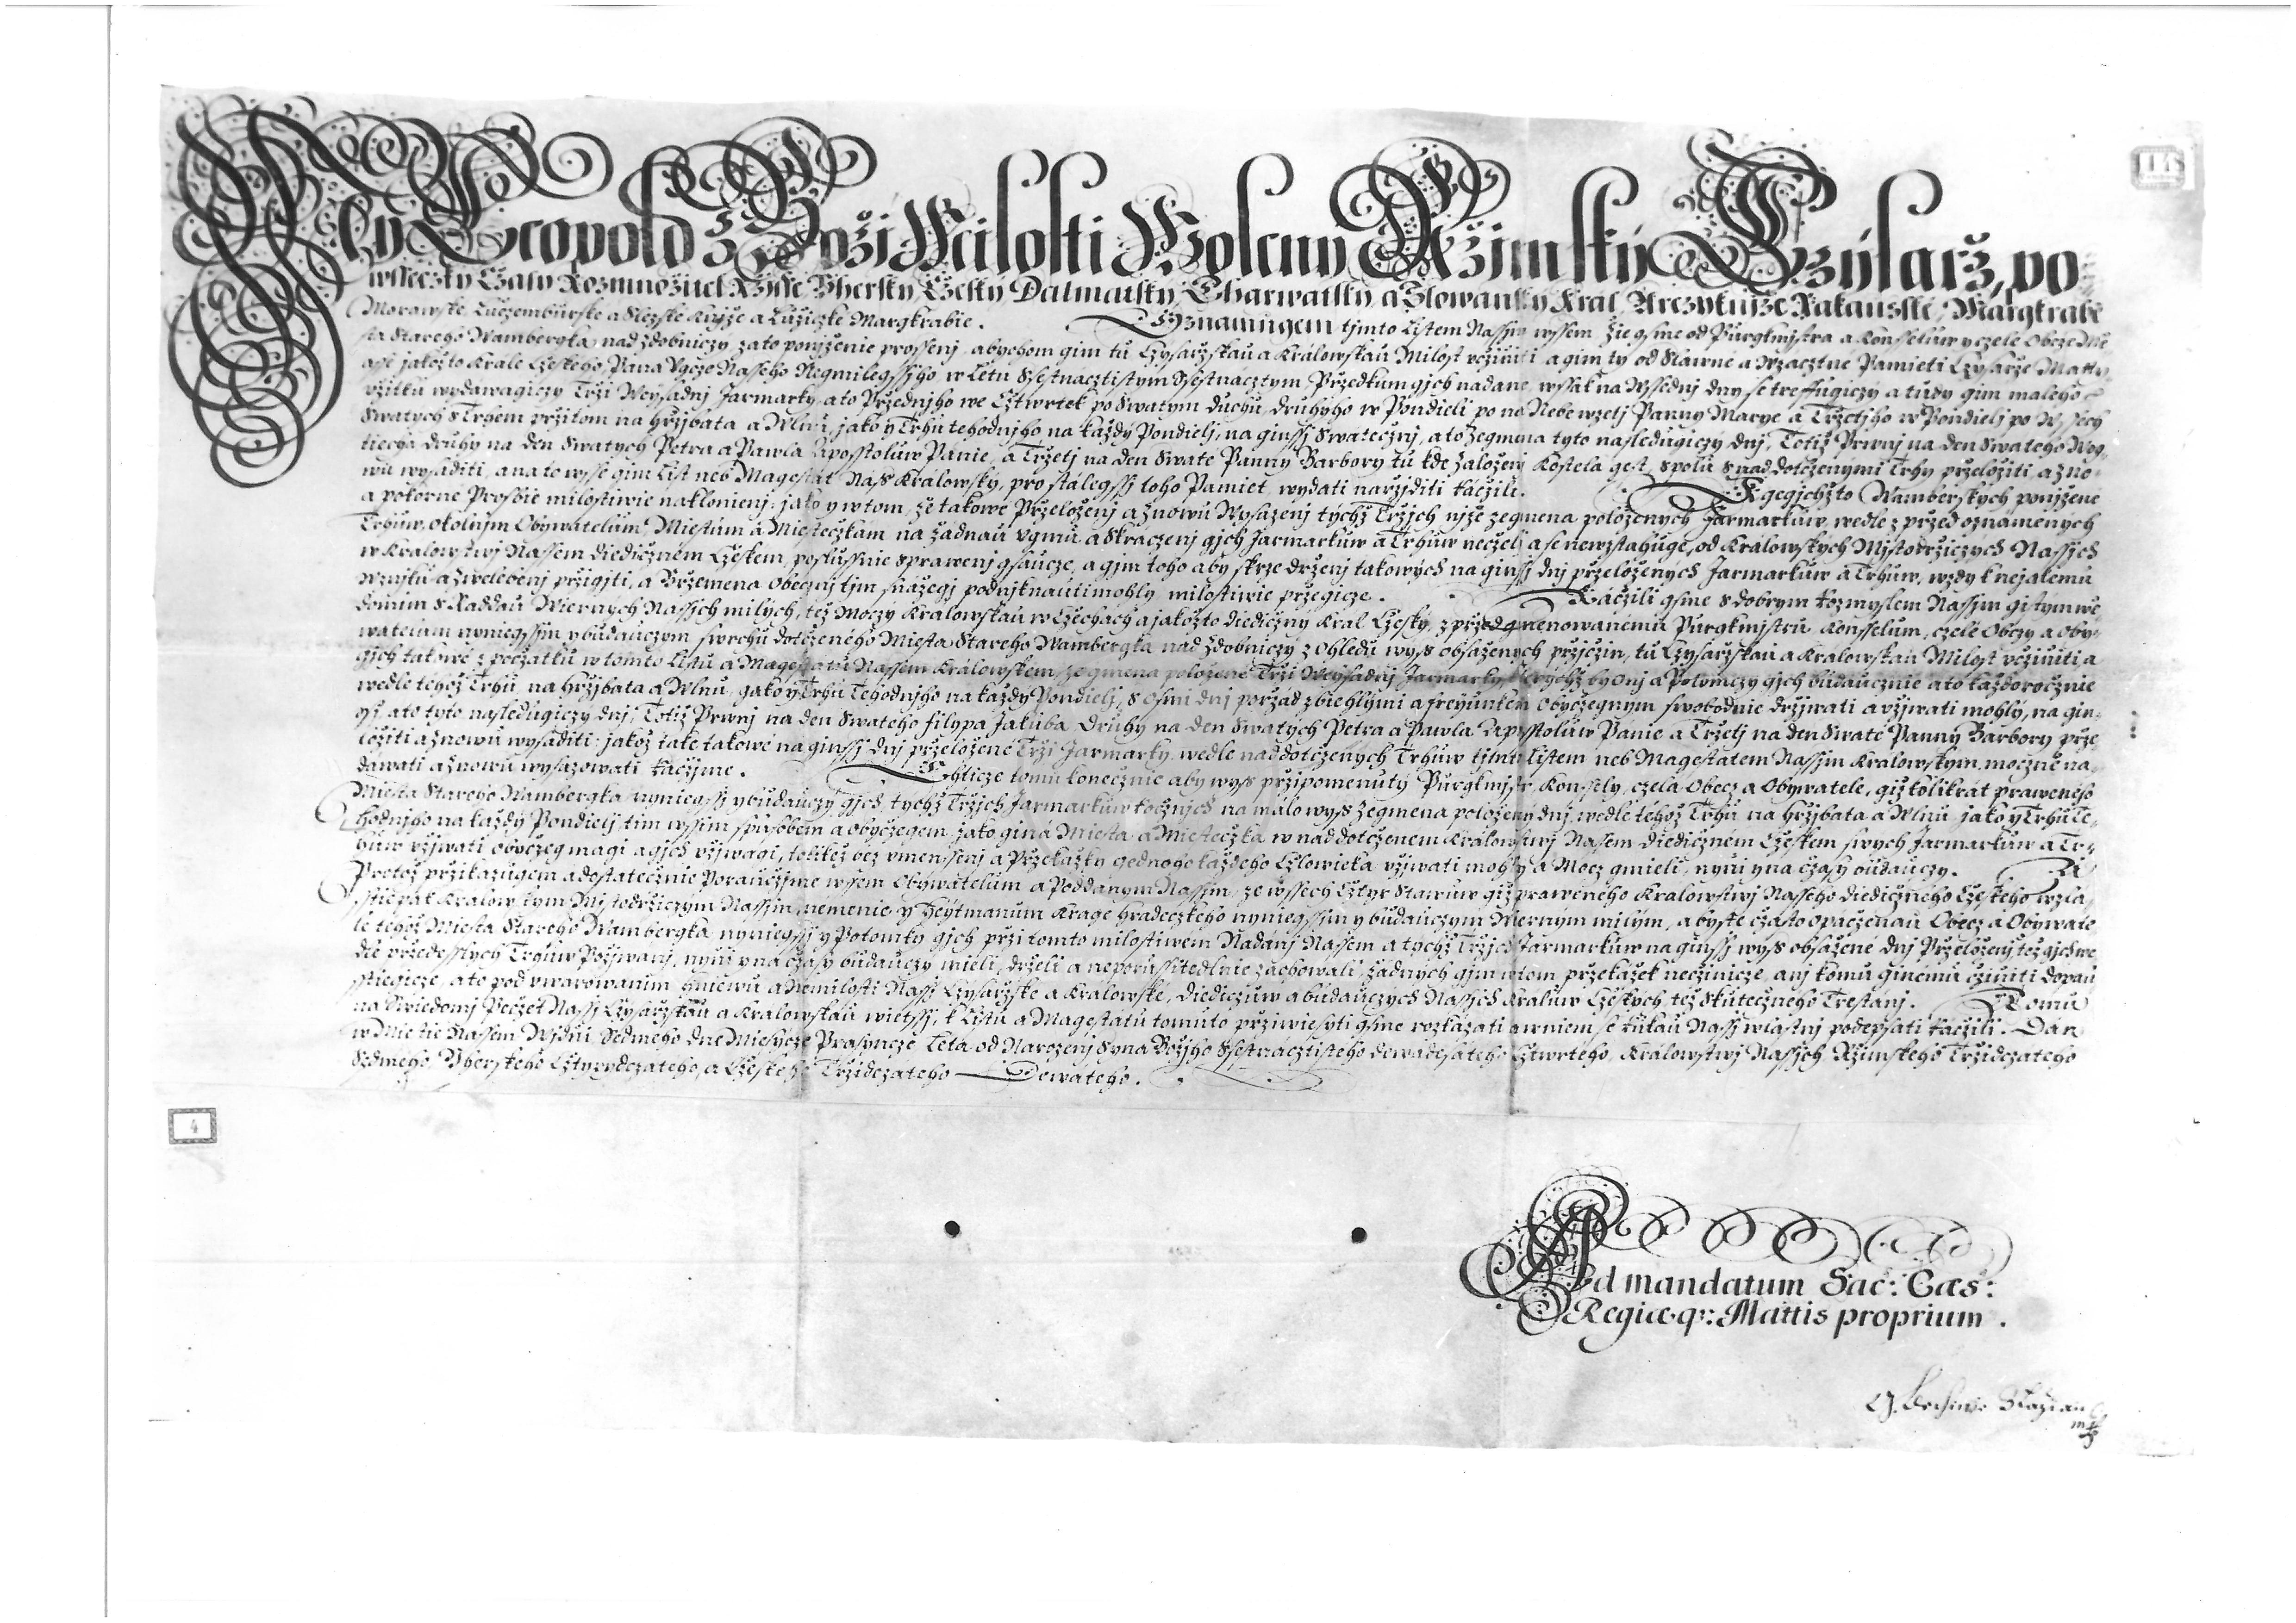 My Leopold z Boži Milosti Wolený Ržimský Czýsarž, po
wsseczky Czasy Rozmnožitel Ržisse, Vhersky, Czesky, Dalmatsky, Charwatsky a Slowansky Král, Arczyknize Rakauské, Margkrabě
Morawské, Luczemburské a Slezské Kniže a Lužiczké Margkrabie. Wyznáwágem tjmto Listem Nassjm wssem, Žie gsme od Purgkmistra a Konsseluw y czelé Obcze Mě
sta Starého Wambergka nad Zdobniczy za to ponjženie prossenj, abychom gim tu Czysaržskau a Králowskau Milost vcziniti, a gim ty od Sláwné a Wzáctné Pamieti Czysarže Matty
ase jakožto Krále Czeského, Pana Vgcze Nasseho Neymilegssjho, w Létu Ssestnácztistym Ssestnácztym, Pržedkum gjch nadané, wssak na Wssednj dny se treffugiczy a tudy gim malého
vžitku wydáwagiczy Tržj Weysadnj Jarmarky, a to Pržednjho we Cztwrtek po Swatym Duchu, druhýho w Pondieli po na Nebe wzetj Panny Marye, a Tržetjho w Pondielj po Wssech
Swatych s Trhem pržitom na Hržjbata a Wlnu, jako y Trhu tehodnjho na každý Pondielj, na ginssj Swátečnj, a to Zegmena tyto následugiczy dnj, Totiž Prwnj na den Swatého Woy-
tiecha, druhý na den Swatych Petra a Pawla Aposstoluw Pánie, a Tržetj na den Swaté Panny Barbory, tu kde Založenj Kostela gest, spolu s nad dotčzenymi Trhy prželožiti a zno-
wu wysáditi, a na to wsse gim List neb Magestát Náss Králowský, pro stálegssj toho Pamiet, wydati naržjditi ráčzili. K gegichžto Wamberských ponjžené
a pokorné Prosbie milostiwie nakloněnj, jako y w tom, že takowé Prželoženj a Znowu Wysazenj tychž Tržjch njže zegmena položených Jarmarkuw, wedle z pržed oznámených
Trhuw, okolnjm Obywateluim, Miestum a Miesteczkám na žádnau vgmu a Skráczenj gjch Jarmarkuw a Trhuw neczelj a se newztahuge, od Králowských Mjstodržiczých Nassjch
w Králowstwj Nassem diedičzném Czeském, poslussnie zprawenj gsaucze, a gim toho aby skrze drženj takowých na ginssj dnj prželožených Jarmarkuw a Trhuw, wzdy k nejakému
wzniku a zwelebenj pržigjti, a Bržemena obecznj tjm snážegj podniknauti mohly, milostiwie pržegicze. Ráčzili gsme s dobrym Rozmyslem Nassjm gistym wě
domim s Raddau Wiernych Nassich milých, též Moczy Králowskau w Czechách, a jakožto diedičzny Král Czesky, z pržed gmenowanému Purgkmistru Konsselum, czelé Obczy a Oby-
watelum nyniegssjm y budauczym swrchu dotčzeného Miesta Starého Wambergka nad Zdobniczy z ohledu wyss obsažených pržjčžin, tu Czysaržskau a Králowskau Milost vcziniti, a
gjch takowé z počzátku w tomto Listu a Magestátu Nassem Králowském zegmena položené Tržj Weysadnj Jarmarky, kterychž by onj a Potomczy gjch budaucznie a to každoročznie
wedle téhož Trhu, na Hržjbata a Wlnu, gako y Trhu Tehodnjho na každý Pondielj, s Osmi dnj poržád zbiehlými a freyunkem obyčzegnym swobodnie držjwati a vžjwati mohly, na gin-
ssj, a to tyto následugiczy dnj, Totiž Prwnj na den Swatého filypa Jakuba, Druhy na den Swatých Petra a Pawla Aposstoluw Pánie, a Tržetj na den Swaté Panny Barbory prže-
ložiti a znowu wysaditi: jakož také takowé na ginssj dnj prželožené Tržj Jarmarky, wedle nad dotčzených Trhuw tjmto Listem neb Magestátem Nassjm Králowskym, mocznie na-
dáwati a znowu wysazowati ráčzjme. Chticze tomu konecznie aby wyss pržipomenuty Purgkmistr, Konssely, czelá Obecz a Obywatele, giž kolikrát prawého
Miesta Starého Wambergka nyniegssj y budauczy, gjch tychž Tržjch Jarmarkuw ročznjch na málo wyss zegmena položený dnj, wedle téhož Trhu na Hržjbata a Wlnu, jako y Trhu Te-
hodnjho na každý Pondielj, tim wssim spusobem a obyčzegem, jako giná Miesta a Miesteczka w nad dotčzeném Králowstwj Nassem diedičzném Czeském swych Jarmarkuw a Tr-
huw vžjwati obyčzeg magi a gjch vžjwagi, tolikéž bez vmenssenj a Pržekážky gednoho každého Czlowieka vžjwati mohly a Mocz gmieli, nynj y na Czasy budauczy. A
Protož pržikazugem a dostatecznie Poraučzjme wssem Obywatelum a Poddanym Nassim, ze wssech Cztyr Stawuw giž prawého Králowstwj Nasseho diedičzného Czeského, wzlá-
sstie pak Králowskym Mjstodržiczym Nassim, nemenie y Heytmanum Krage Hradeczkého nyniegssjm y budauczym, Wiernym milým, abyste cžasto opáčzenau Obecz a Obywate
le téhož Miesta Starého Wambergka nyniegssj y Potomky gjch, pržitomto milostiwem Nadánj Nassem a tychž Tržjch Jarmarkuw na ginssj wyss obsažené dnj Prželoženj, též gjch we-
dle pržedesslych Trhuw Požjwánj, nynj y na Czasy budauczy mieli, drželi a neporussitedlnie zachowali, žádných gjm w tom pržekážek nečzinicze, anj komu ginému čziniti dopau-
sstiegicze, a to pod vwarowanim Hniewu a Nemilosti Nassj Czysaržské a Králowské, Diedičzuw a budauczych Nassich Králuw Czeských, též Skutečzného Trestánj. Tomu
na Swiedomj Peczet Nassj Czysaržskau a Králowskau wietssj, k Listu a Magestátu tomuto pržiwiesyti gsme rozkázati a w niem se rukau Nassj wlastnj podepsati ráčzili. Dán
w Miestie Nassem Wjdni Sedmého dne Miesycze Prasyncze Léta od Narozenj Syna Božjho Ssestnácztistého dewadesátého Cztwrtého, Králowstwj Nassjch Ržimského Tržidczátého
Sedmého, Vherského Cztyrydczátého, a Czeského Tržidczátého Dewátého.
Ad mandatum Sac: Cæs:
Regiæ.q: Mattis proprium.
4